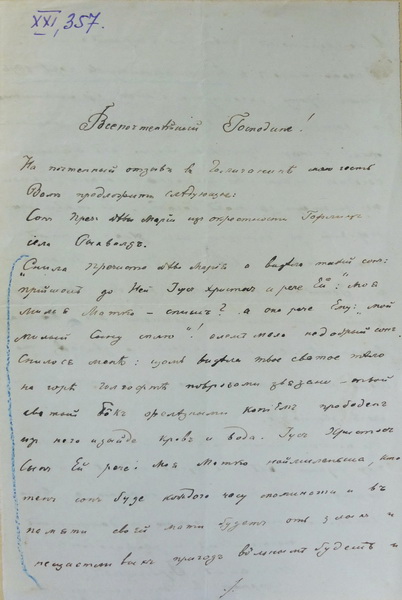 XXI, 357.
Всепочтенный Господине!
На почтенный отзывъ въ маю честь
Вамъ предложити слѣдующее:
Сонъ Преч. Дѣвы Маріи изъ окрестности Горлицъ
села
"Снила Пречиста Дѣва Марія а видѣла такій сонъ:
прійшолъ до Ней Іусъ Христосъ и рече Ей: "Моя
мила Матко – спишъ? а она рече Ему: "мой
милый Сыну сплю"! але мъ мала сонъ
Снилося менѣ: щомъ видѣла твое святое тѣло
на горѣ повровами звязане – твой
святый бокъ копіемъ прободенъ
изъ него изыйде кровъ и вода. Іусъ Христосъ
Сынъ Ей рече: Моя Матко наймилѣйша, кто
тенъ сонъ буде каждого часу споминати и въ
памяти своей мати будетъ отъ злыхъ и
нещастливыхъ пригодъ вольнымъ будетъ и